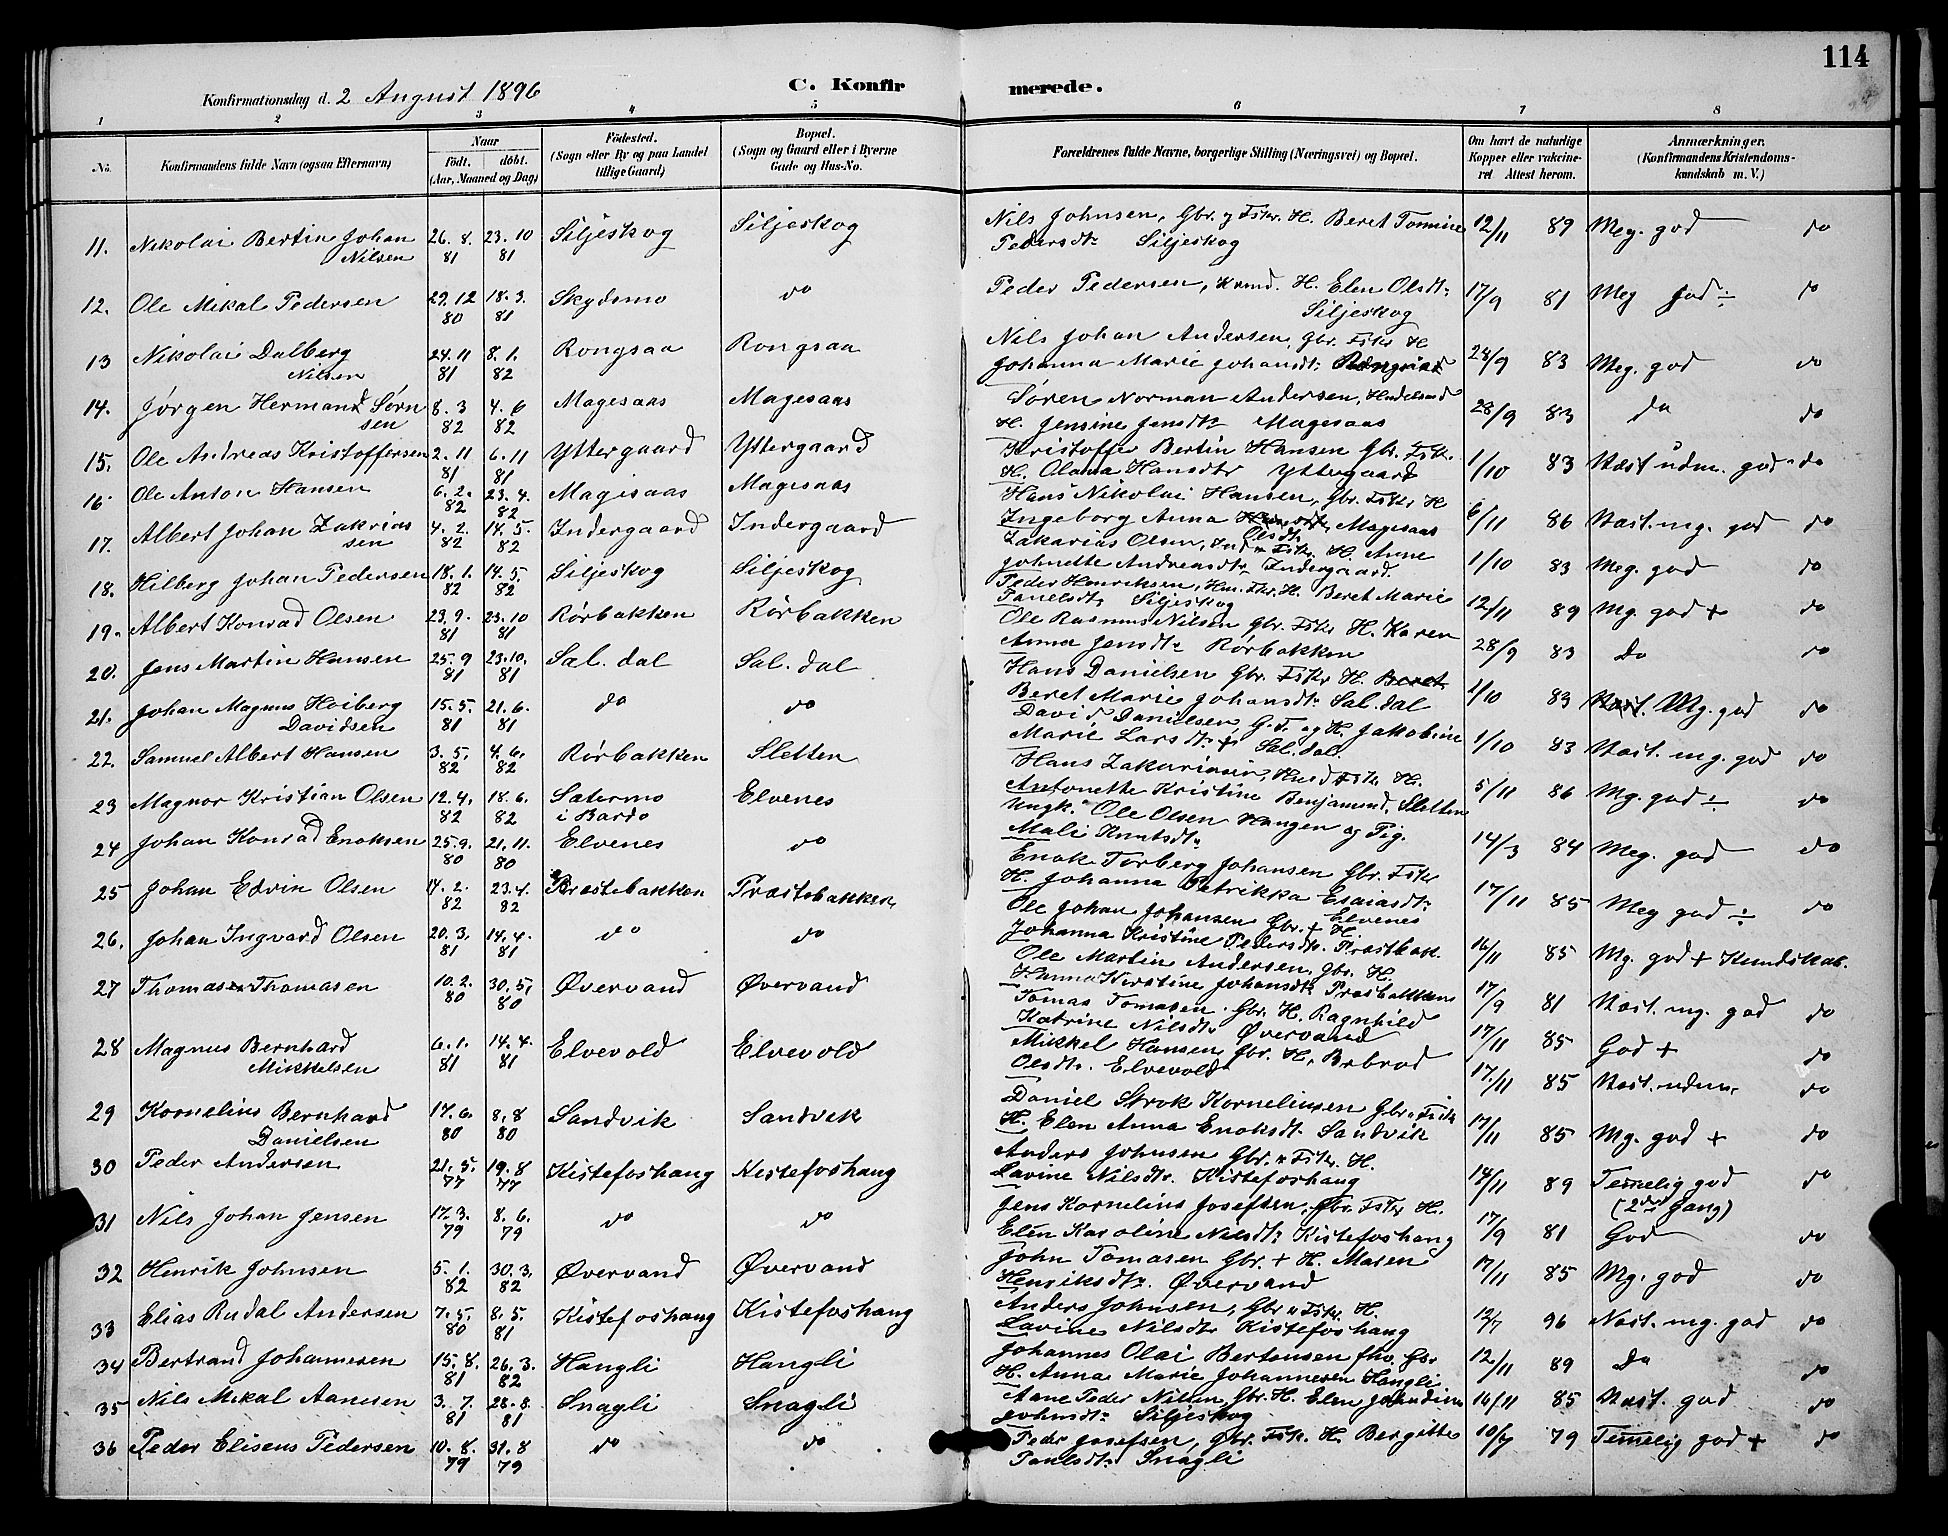 114
Konfirmationsdag d. 2 August 1896
C. Konfirmerede.
1 2 3 4 5 6 7 8
No. Konfirmandens fulde Navn (ogsaa Efternavn) Naar født. døbt. (Aar, Maaned og Dag) Fødested. (Sogn eller By og paa Landet tillige Gaard) Bopæl. (Sogn og Gaard eller i Byerne Gade og Hus-No. Forældrenes fulde Navne, borgerlige Stilling (Næringsvei) og Bopæl. Om havt de naturlige Kopper eller vakcineret Attest herom. Anmærkninger. (Konfirmandens Kristendomskundskab m. V.)
11. Nikolai Bertin Johan Nilsen 26. 8. 81 23. 10 81 Siljeskog Siljeskog Nils Johnsen, Gbr. og Fsker. H. Beret Tomine Pedersdt. Siljeskog 12/11 89 Meg. god do
12. Ole Mikal Pedersen 29. 12 80 18. 3. 81 Skydsmo do Peder Pedersen, H. Elen Olsdt. Siljeskog 17/9 81 Meg god ÷ do
13 Nikolai Dalberg Nilsen 24. 11 81 8. 1. 82 Rongsaa Rongsaa Nils Johan Andersen, Gbr. Fsker H Johanna Marie Johansdt. 28/9 83 Meg. god do
14. Jørgen Hermand Sørnsen 8. 3 82 4. 6 82 Magesaas Magesaas Søren Norman Andersen, H. Jensine Jensdt. Magesaas 28/9 83 Do do
15. Ole Andreas Kristoffersen 2. 11 81 6. 11 81 Yttergaard Yttergaard Kristoffer Bertin Hansen Gbr. Fsk. H. Olana Hansdtr Yttergaard 1/10 83 Næst udm. god do
16 Ole Anton Hansen 6. 2. 82 23. 4. 82 Magesaas Magesaas Hans Nikolai Hansen, Gbr. Fsker H Ingeborg Anna Olsdt. Magesaas 6/11 86 Næst. mg. god do
17. Albert Johan Zakriassen 4. 2. 82 14. 5. 82 Indergaard Indergaard Zakarias Olsen, Ind. Fsk. H. Anne Johnette Andreasdt. Indergaard. 1/10 83 Meg. god do
18. Hilberg Johan Pedersen 18. 1. 82 14. 5. 82 Siljeskog Siljeskog Peder Henriksen, Fsker. H. Beret Marie Siljeskog 12/11 89 Mg. god + do
19. Albert Konrad Olsen 23. 9. 81 23. 10 81 Rørbakken Rørbakken Ole Rasmus Nilsen Gbr. Fsker H. Karen Anna Jensdt. Rørbakken 28/9 83 Do do
20. Jens Martin Hansen 25. 9 81 23. 10. 81 Sal. dal Sal. dal Hans Danielsen Gbr. Fsker H. Beret Beret Marie Johansdt. Sal. dal 1/10 83 Næst. Mg. god do
21. Johan Magnus Hoiberg Davidsen 15. 5. 81 21. 6. 81 do do David Danielsen, G. F. og H. Jakobine Marie Larsdt. + Sal. dal. 1/10 83 Næst. mg. god do
22. Samuel Albert Hansen 3. 5. 82 4. 6. 82 Rørbakken Sletten Hans Zakariasen, Fsker H. Antonette Kristine Benjamind. Sletten 5/11 86 Mg. god ÷ do
23 Magnor Kristian Olsen 12. 4. 82 18. 6. 82 Sætermo i Bardo Elvenes Ungk. Ole Olsen Haugen og Pig. Mali Knutsdt. 14/3 84 Meg. god do
24 Johan Konrad Enoksen 25. 9. 80 21. 11. 80 Elvenes do Enok Torberg Johansen Gbr. Fsker H. Johanna Petrikka Esaiasdt. Elvenes 17/11 85 Meg god ÷ do
25 Johan Edvin Olsen 4. 2. 82 23. 4. 82 Præstebakken Præstebakken Ole Johan Johansen Gbr. + H. Johanna Kristine Pedersdt. Præstbak. 16/11 85 Mg. god + Kundskab.
26. Johan Ingvard Olsen 20. 3. 81 14. 4. 81 do do Ole Martin Andersen, Gbr. H. Hanna Kirstine Johansdt. Præstbakkens 17/9 81 Næst. mg. god do
27 Thomas Thomasen 10. 2. 80 30. 5. 80 Øvervand Øvervand Tomas Tomasen. Gbr. H. Ragnhild Katrine Nilsdt. Øvervand 17/11 85 God + do
28 Magnus Bernhard Mikkelsen 6. 1. 81 14. 4. 81 Elvevold Elvevold Mikkel Hansen Gbr. H. Olsdt. Elvevold 17/11 85 Næst. udm. do
29 Kornelius Bernhard Danielsen 17. 6. 80 8. 8 80 Sandvik Sandvik Daniel Strok Korneliusen Gbr. Fisk H. Elen Anna Enoksdt. Sandvik 17/11 85 Mg. god + do
30 Peder Andersen 21. 5. 77 19. 8 77 Kistefoshang Kistefoshang Anders Johnsen Gbr. Fsk. H. Lavine Nilsdt. Kistefoshang 14/11 89 Temelig god (2den Gang) do
31 Nils Johan Jensen 17. 3. 79 8. 6. 79 do do Jens Kornelius Joseften, Gbr. Fsker H. Elen Karoline Nilsdt. Kistefoshang 17/9 81 God do
32 Henrik Johnsen 5. 1. 82 30. 3. 82 Øvervand Øvervand John Tomasen Gbr. + H. Maren Henriksdt. Øvervand 17/11 85 Mg. god do
33 Elias Rudal Andersen 7. 5. 80 8. 5. 81 Kistefoshang Kistefoshang Anders Johnsen, Gbr. Fsk. H. Lavine Nilsdt. Kistefoshang 12/7 96 Næst. mg. god do
34 Bertrand Johannesen 15. 8. 81 26. 3. 82 Hangli Hangli Johannes Olai Bertensen fhv. Gbr H. Anna Marie Johannesen Hangli 12/11 89 Do do
35 Nils Mikal Aanesen 3. 7. 81 28. 8. 81 Snagli Snagli Aane Peder Nilsen Gbr. H. Elen Johndine Johnsdt. Siljeskog 16/11 85 Næst. god do
36 Peder Elisens Pedersen 10. 8. 79 31. 8 79 do do Peder Josefsen, Gbr. Fsk. H. Bergitte Paulsdt. Snagli 10/7 79 Temelig god + do